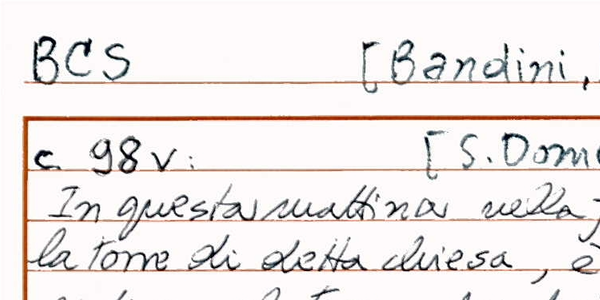 BCS [Bandini,
c. 98v: [S. Dom
In questa mattina nella
la torre di detta chiesa, è